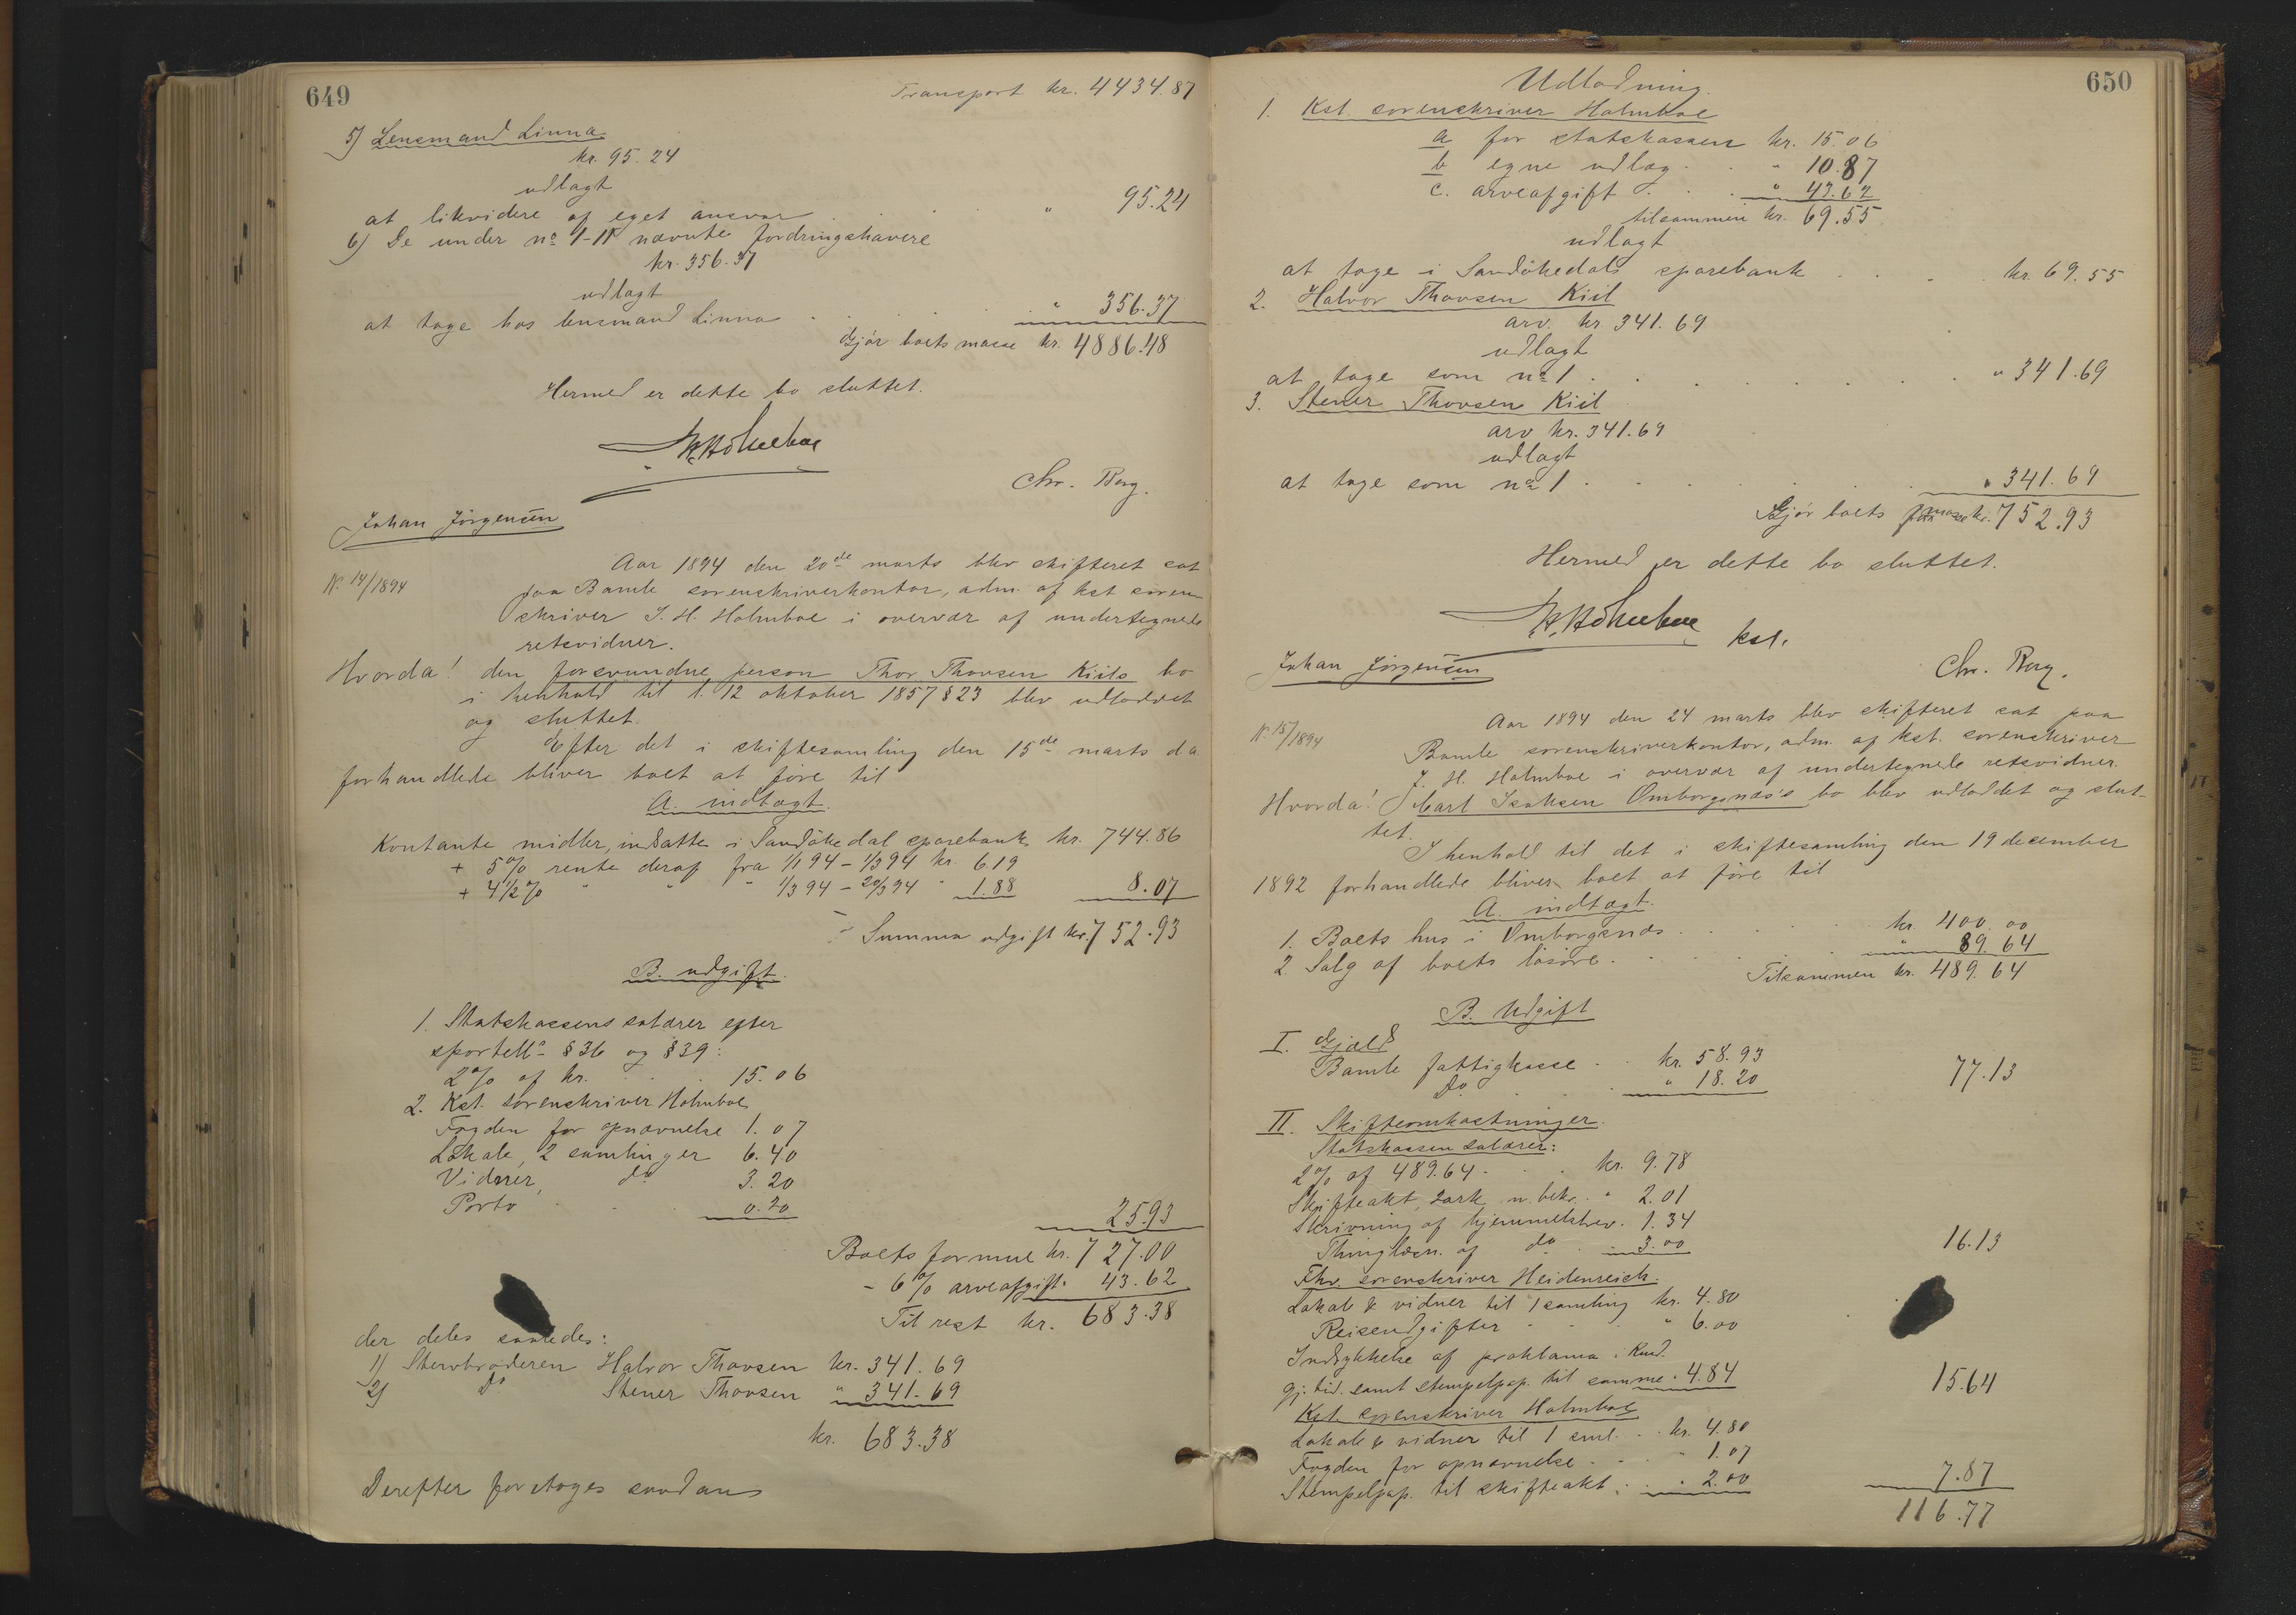 649
Transport kr. 4434.87
5) Lensmand Linna
kr. 95.24
udlagt
at likvidere af eget ansvar . . . " 95.24
6) De under no 1-11 nævnte fordringshavere
kr. 356.37
udlagt
at tage hos lensmand Linna . . . " 356.37
Gjør boets masse kr. 4886.48
Hermed er dette bo sluttet.
Holmboe
Chr. Berg.
Johan Jörgensen
N. 14/1894
Aar 1894 den 20de marts blev skifteret sat
paa Bamle sorenskriverkontor, adm. af kst soren-
skriver J. H. Holmboe i overvær af undertegnede
retsvidner.
Hvorda! den forsvundne person Thor Thovsen Kiils bo
i henhold til l. 12 oktober 1857 § 23 blev udloddet
og sluttet.
Efter det i skiftesamling den 15de marts da
forhandlede bliver boet at före til
A. indtægt.
Kontante midler, indsatte i Sandökedal sparebank kr. 744.86
+ 5% rente deraf fra 1/1 94 – 1/3 94 kr. 6.19
+ 4 1/2 % " " " 1/3 94 – 20/3 94 " 1.88 8.07
Summa udgift kr. 752.93
B. udgift.
1. Statskassens salærer efter
sportell. § 36 og § 39:
2% af kr. . . . 15.06
2. Kst. sorenskriver Holmboe
Fogden for opnævnelse 1.07
Lokale, 2 samlinger 6.40
Vidner, do 3.20
Porto . . . 0.20
25.93
Boets formue kr. 727.00
– 6% arveafgift " 43.62
Til rest kr. 683.38
der deles saaledes:
1) Stervbroderen Halvor Thovsen kr. 341.69
2) Do Stener Thovsen " 341.69
kr. 683.38
Derefter foretages saadan
650
Udlodning.
1. Kst. sorenskriver Holmboe
a for statskassen kr. 15.06
b egne udlæg . . " 10.87
c. arveafgift . . . " 43.62
tilsammen kr. 69.55
udlagt
at tage i Sandökedals sparebank . . . kr. 69.55
2. Halvor Thovsen Kiil
arv. kr. 341.69
udlagt
at tage som no 1 . . . " 341.69
3. Stener Thovsen Kiil
arv kr. 341.69
udlagt
at tage som no 1 . . . " 341.69
Gjör boets masse kr. 752.93
Hermed er dette bo sluttet.
Holmboe kst.
Johan Jörgensen
Chr. Berg.
N. 15/1894
Aar 1894 den 24 marts blev skifteret sat paa
Bamle sorenskriverkontor, adm. af kst. sorenskriver
J. H. Holmboe i overvær af undertegnede retsvidner.
Hvorda! Carl Isaksen Omborgsnæs's bo blev udloddet og slut-
tet.
I henhold til det i skiftesamling den 19 december
1892 forhandlede bliver boet at före til
A. indtægt.
1. Boets hus i Omborgsnæs . . . kr. 400.00
2. Salg af boets lösöre . . . " 89.64
Tilsammen kr. 489.64
B. Udgift
I. Gjæld
Bamle fattigkasse . . kr. 58.93
Do . . " 18.20 77.13
II. Skifteomkostninger.
Statskassen salærer:
2% af 489.64 . . . kr. 9.78
Skifteakt, 2 ark m. bekr. " 2.01
Skrivning af hjemmelsbrev. 1.34
Thinglæsn. af do . . 3.00 16.13
Fhv. sorenskriver Heidenreich.
Lokale & vidner til 1 samling kr. 4.80
Reiseudgifter . . . " 6.00
Indrykkelse af proklama i Kund.
gj. tid. samt stempelpap. til samme . 4.84 15.64
Kst. sorenskriver Holmboe
Lokale & vidner til 1 saml. . . kr. 4.80
Fogden for opnævnelse . . . " 1.07
Stempelpap. til skifteakt . . . " 2.00 7.87
116.77